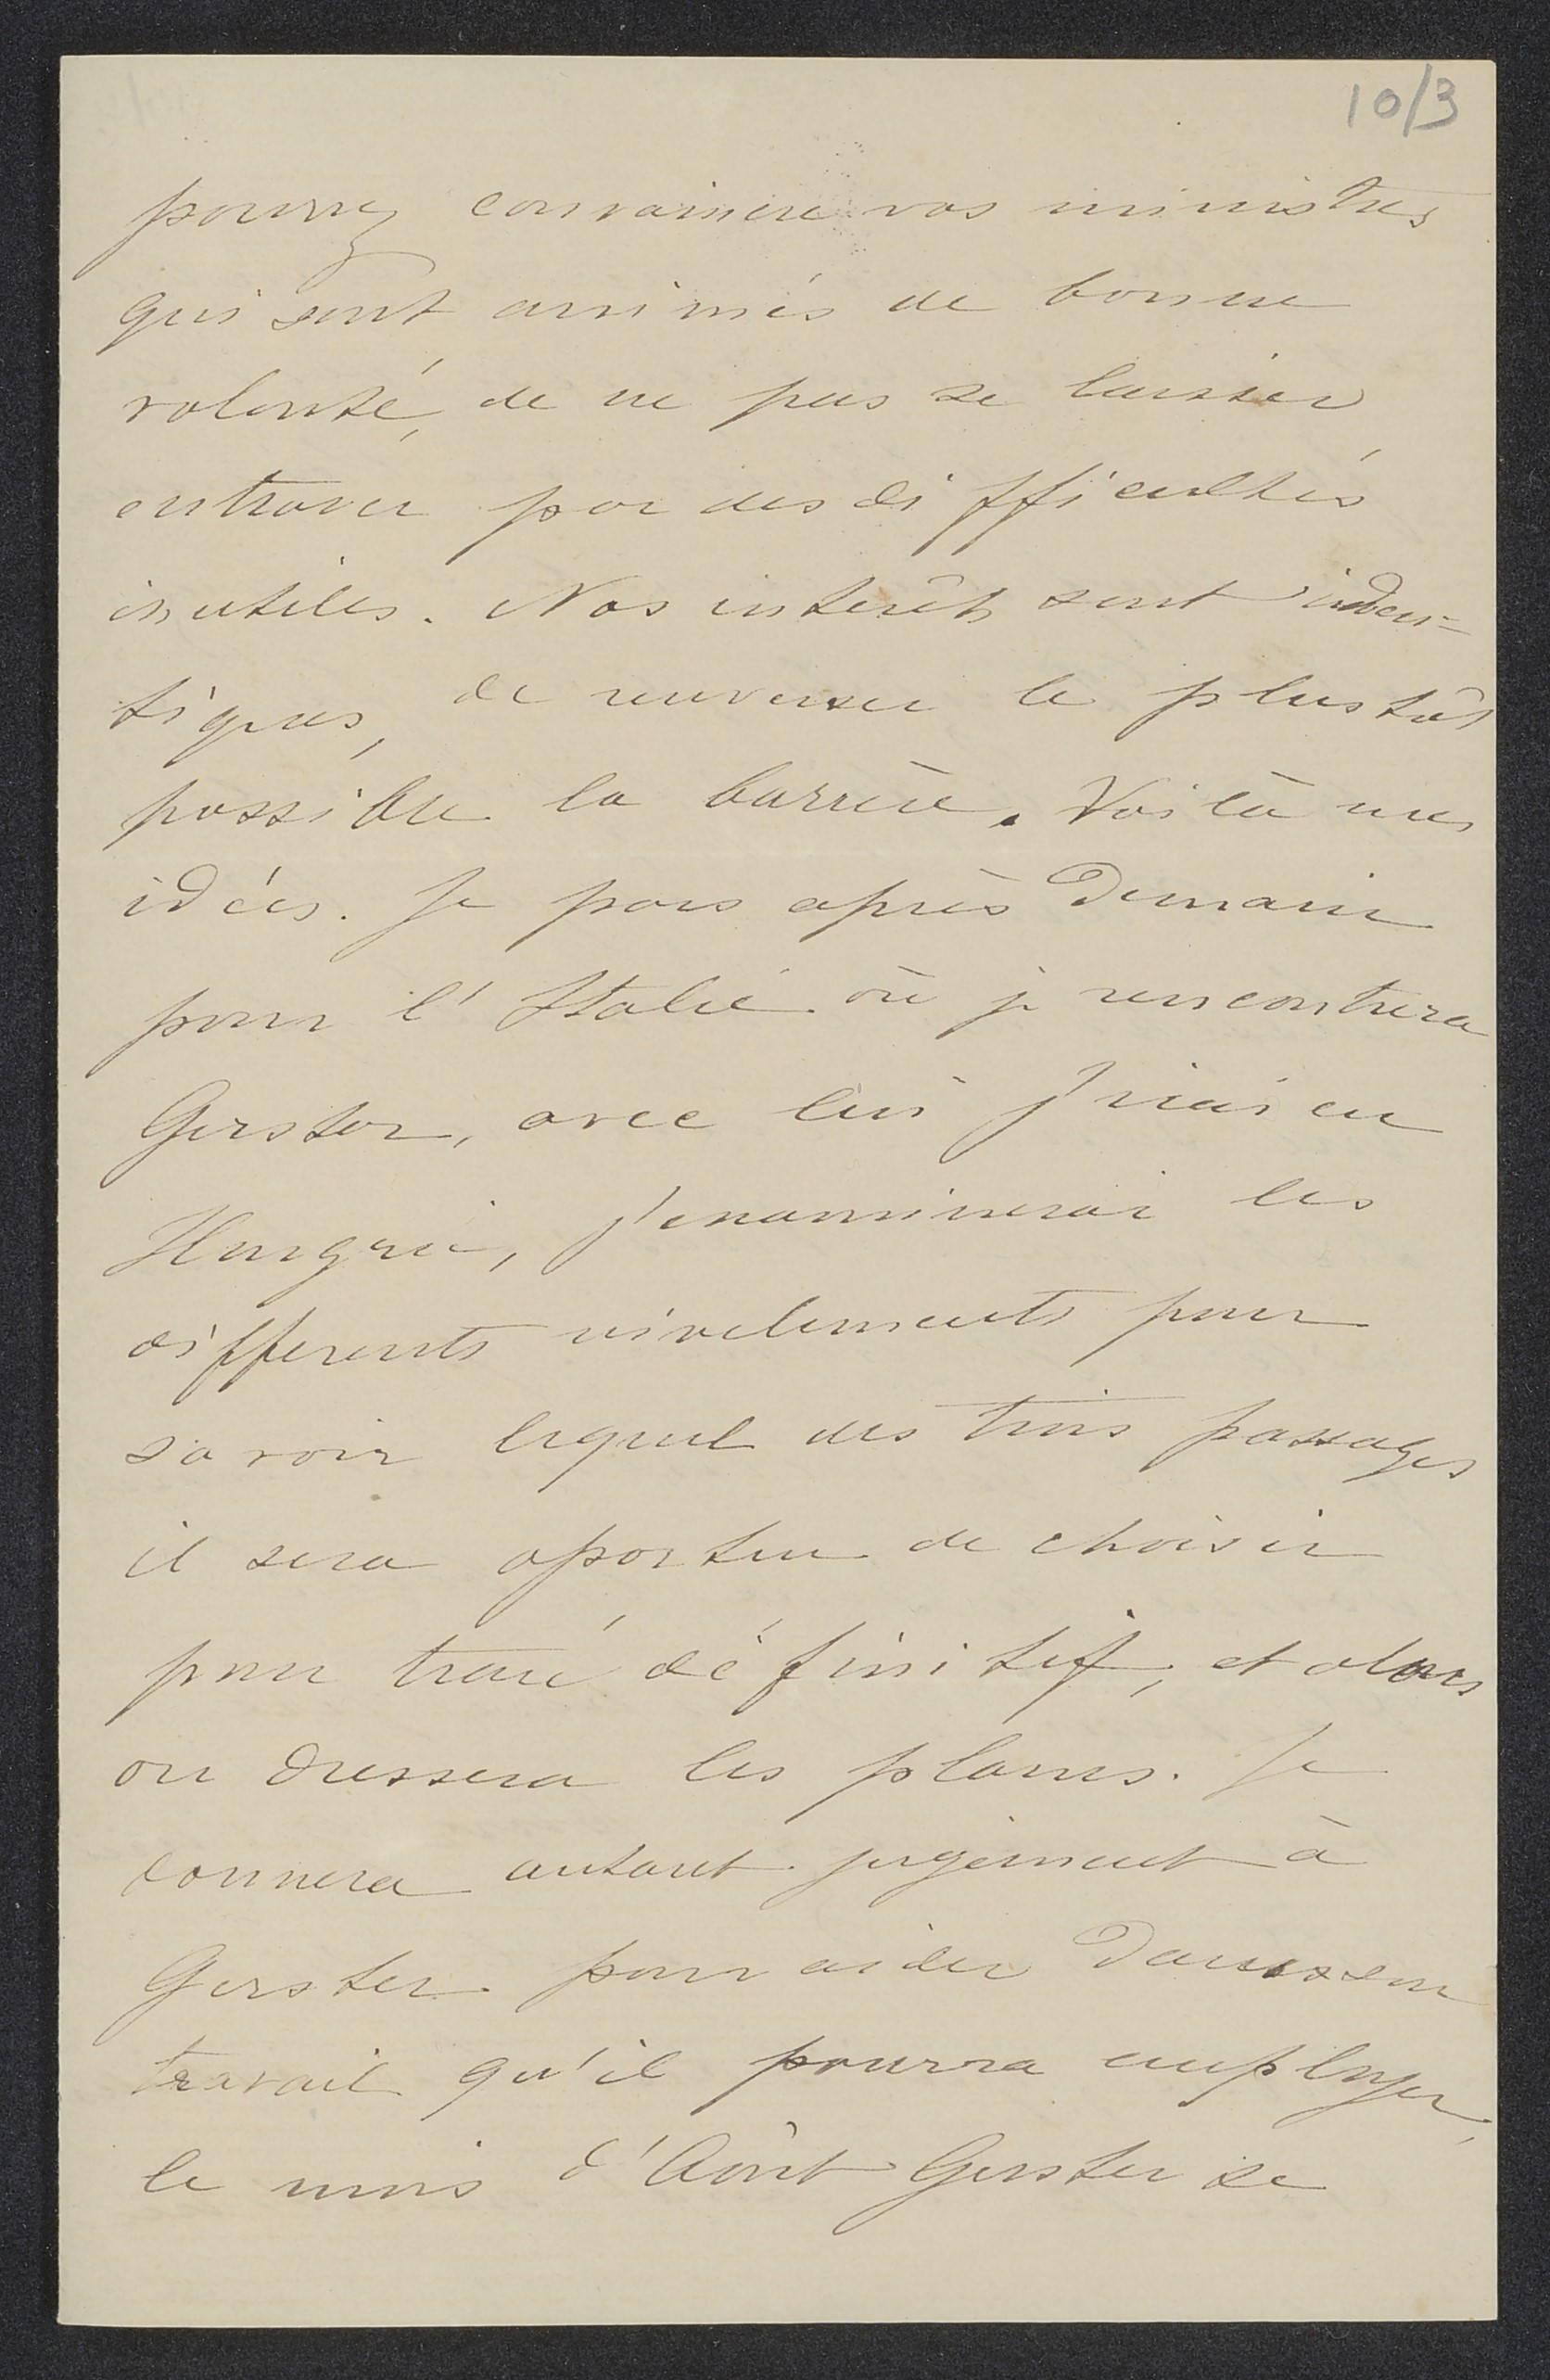 10/3
pourrez convaincre vos ministres
qui sont animés de bonne
volonté, de ne pas se laisser
entraver par des difficultés
inutiles. Nos interêts sont iden=
tiques, de renverser le plus tôt
possible la barrière. Voilà mes
idées. Je pars après Demain
pour l'Italie où je rencontrera
Gerster, avec lui j'irai en
Hongrie, j'enaminerai les
differents nivelements pour
savoir lequel des trois passages
il sera oportun de choisir
pour tracé définitif, et alors
on dressera les plans. Je
donnera autant jugement à
Gerster pour aider Dans son
travail qu'il pourra employer,
le mois d'Août Gerster se